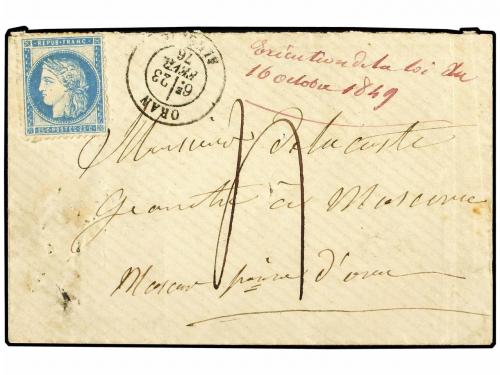 REPUB·FRANC
25·C·POSTES·25·C
ORAN
6E 23
FEVR
76
Exécution de la loi du
16 octobre 1849
Monsieur Delacoste
à Mascara
Mascara d'oran